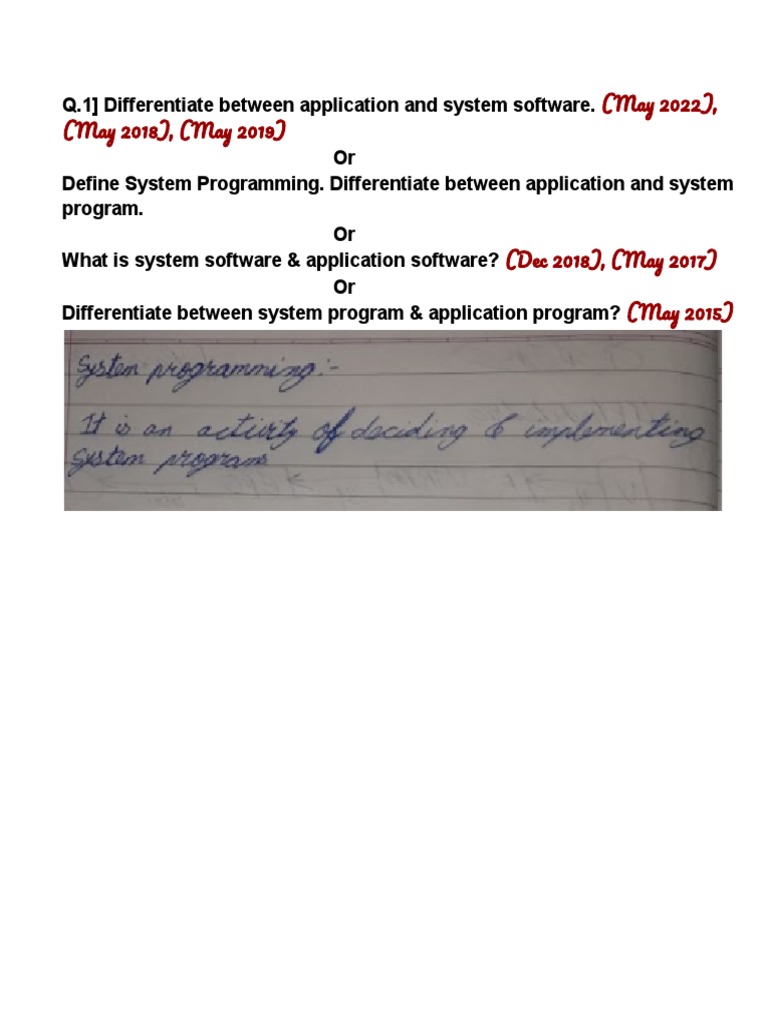 Q.1] Differentiate between application and system software. (May 2022),
(May 2018), (May 2019)
Or
Define System Programming. Differentiate between application and system
program.
Or
What is system software & application software? (Dec 2018), (May 2017)
Or
Differentiate between system program & application program? (May 2015)
System programming:-
It is an activity of deciding & implementing
System programs